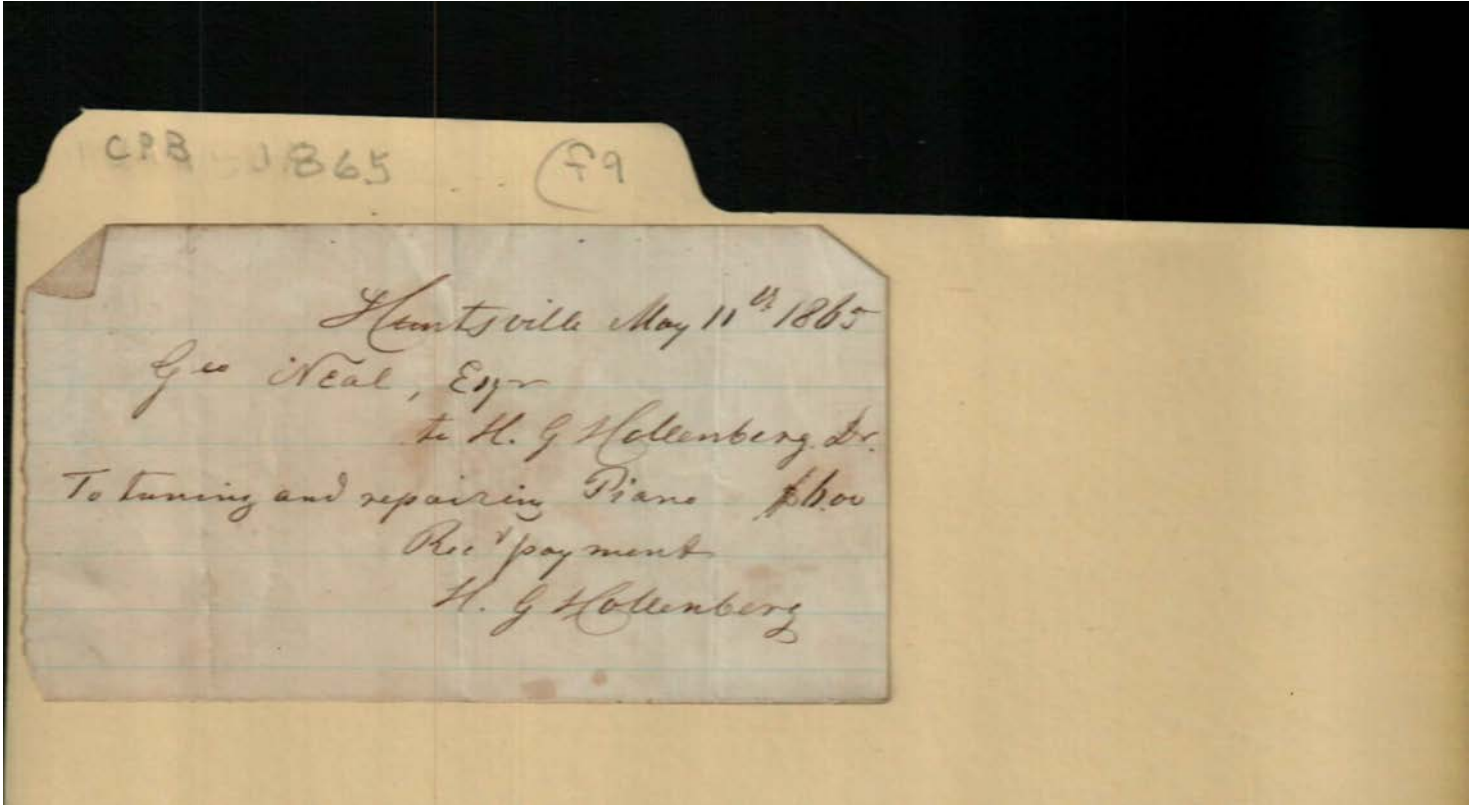 CPB 1865 f9
Huntsville May 11th 1865
Geo Neal, Esqr
to H. G Hollenberg. Dr.
To tuning and repairing Piano
Recd payment
H. G Hollenberg